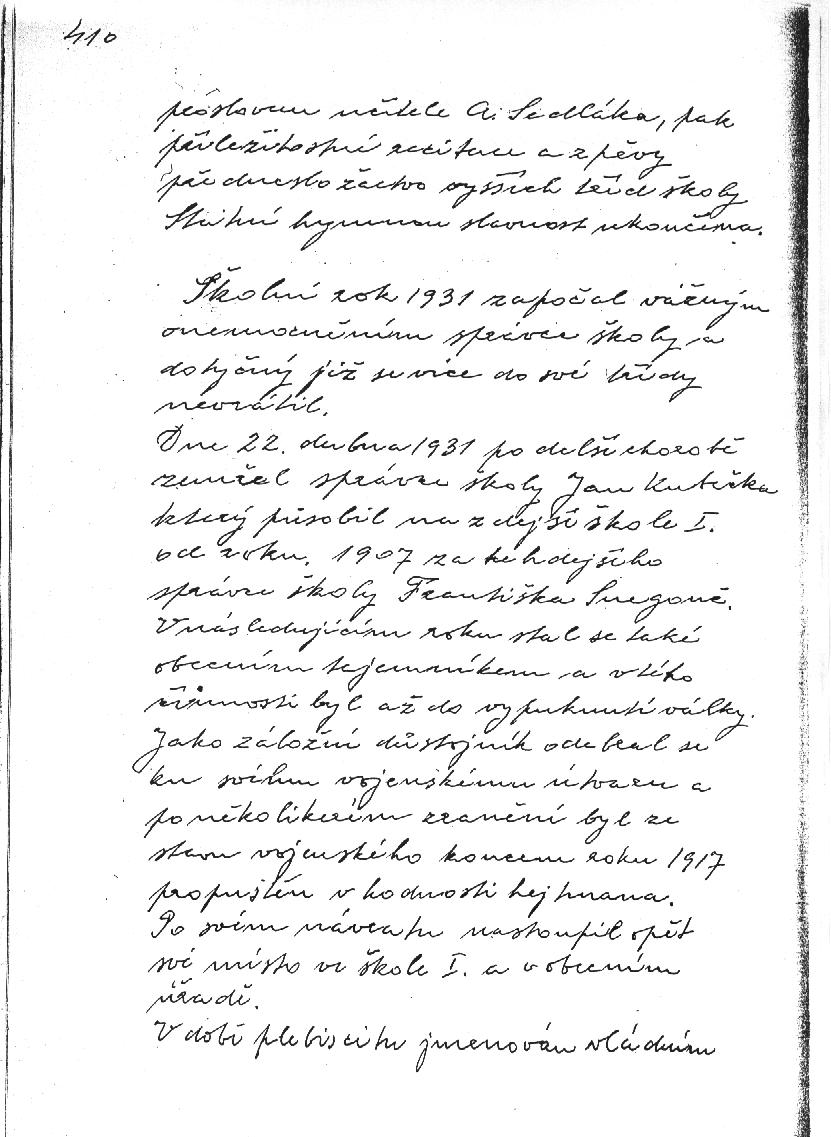 410
proslovem učitele A. Sedláka, pak
příležitostné recitace a zpěvy
předneslo žactvo vyšších tříd školy
Státní hymnou slavnost ukončena.
Školní rok 1931 započal vážným
onemocněním správce školy a
dotyčný již se více do své třídy
nevrátil.
Dne 22. dubna 1931 po delší chorobě
zemřel správce školy Jan Kubička
který působil na zdejší škole I.
od roku. 1907 za tehdejšího
správce školy Františka Snegoně.
V následujícím roku stal se také
obecním tajemníkem a v této
činnosti byl až do vypuknutí války.
Jako záložní důstojník odebral se
ku svému vojenskému útvaru a
po několikerém zranění byl ze
stavu vojenského koncem roku 1917
propuštěn v hodnosti hejtmana.
Po svém návratu nastoupil opět
své místo ve škole I. a v obecním
úřadě.
V době plebiscitu jmenován vládním